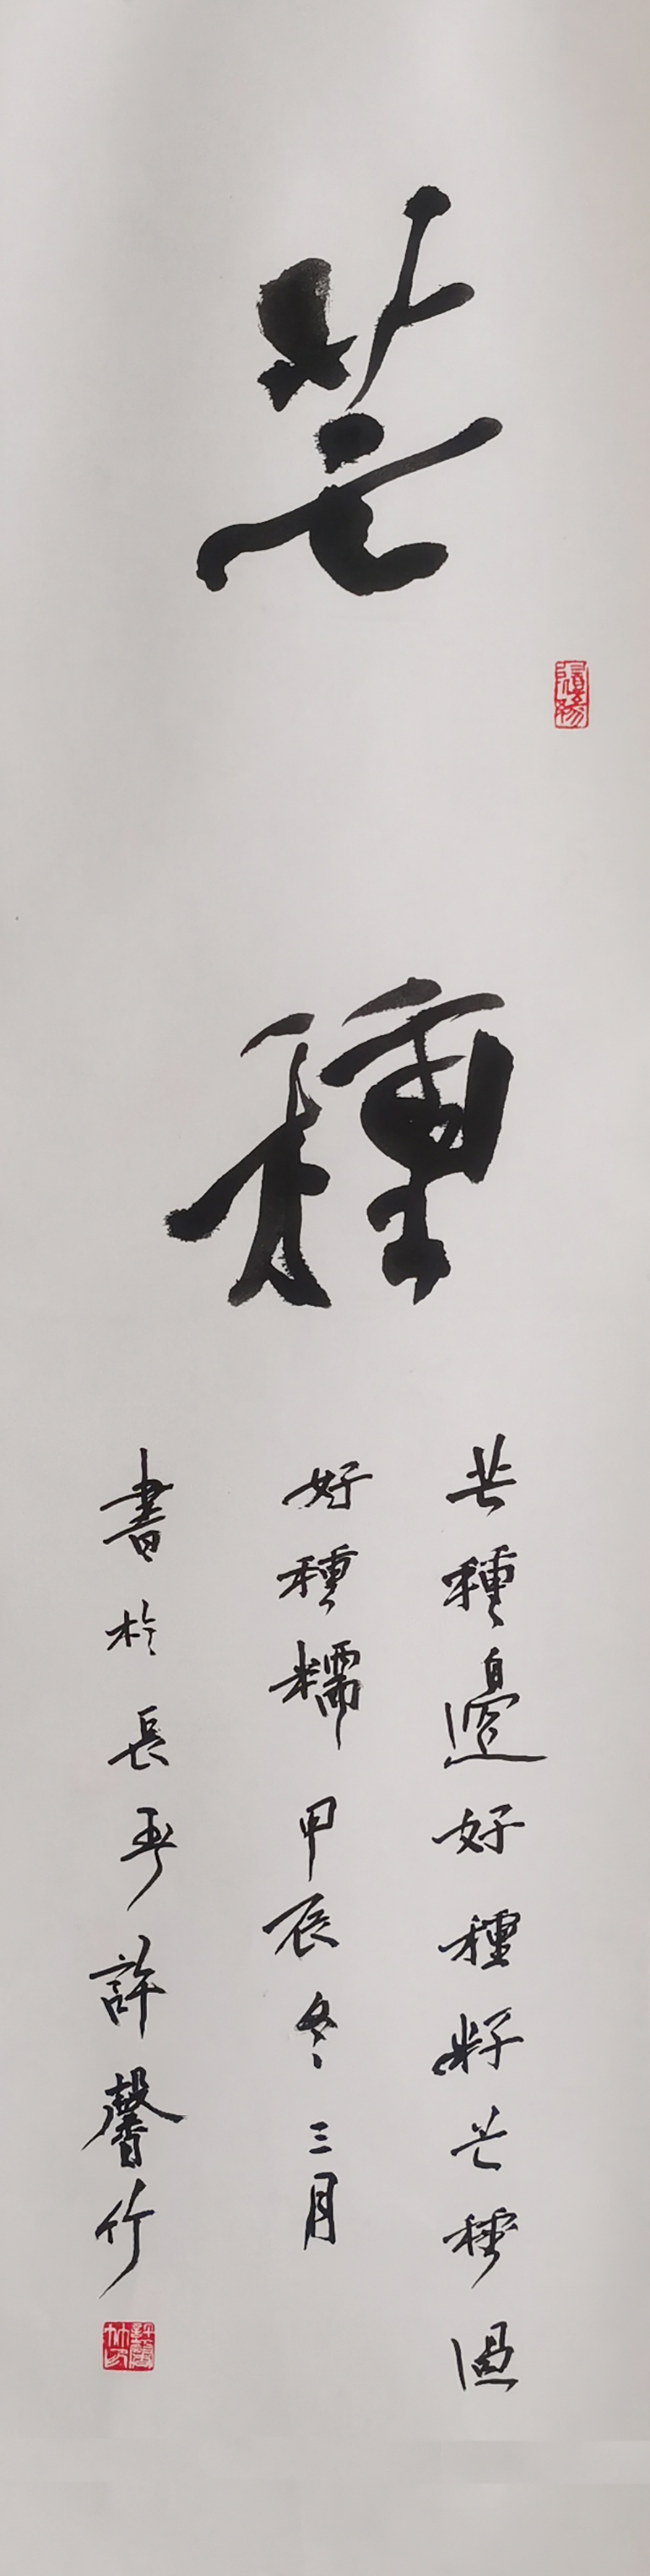 芒種
芒種邊好種籽芒種過
好種糯甲辰冬三月
書於長平許馨竹
許馨竹印